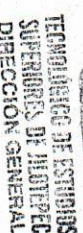 TECNOLÓGICO DE ESTUDIOS
SUPERIORES DE JILOTEPEC
DIRECCIÓN GENERAL